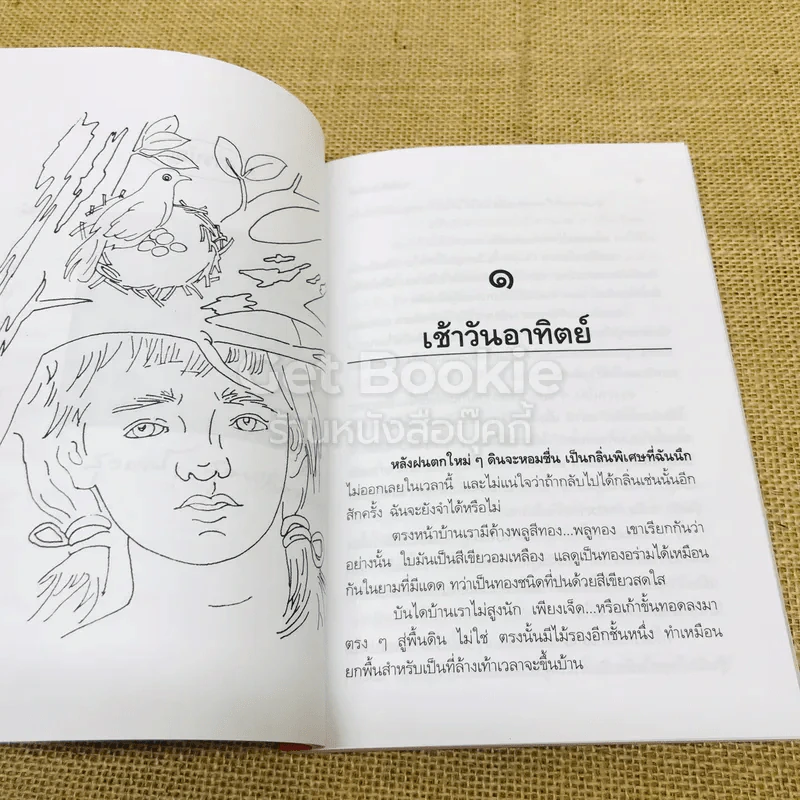 ๑
เช้าวันอาทิตย์
Get Bookie
ร้านหนังสือบุ๊คกี้
หลังฝนตกใหม่ ๆ ดินจะหอมชื่น เป็นกลิ่นพิเศษที่ฉันนึก
ไม่ออกเลยในเวลานี้ และไม่แน่ใจว่าถ้ากลับไปได้กลิ่นเช่นนั้นอีก
สักครั้ง ฉันจะยังจำได้หรือไม่
ตรงหน้าบ้านเรามีค้างพลูสีทอง...พลูทอง เขาเรียกกันว่า
อย่างนั้น ใบมันเป็นสีเขียวอมเหลือง แลดูเป็นทองอร่ามได้เหมือน
กันในยามที่มีแดด ทว่าเป็นทองชนิดที่ปนด้วยสีเขียวสดใส
บันไดบ้านเราไม่สูงนัก เพียงเจ็ด...หรือเก้าขั้นทอดลงมา
ตรง ๆ สู่พื้นดิน ไม่ใช่ ตรงนั้นมีไม้รองอีกชั้นหนึ่ง ทำเหมือน
ยกพื้นสำหรับเป็นที่ล้างเท้าเวลาจะขึ้นบ้าน